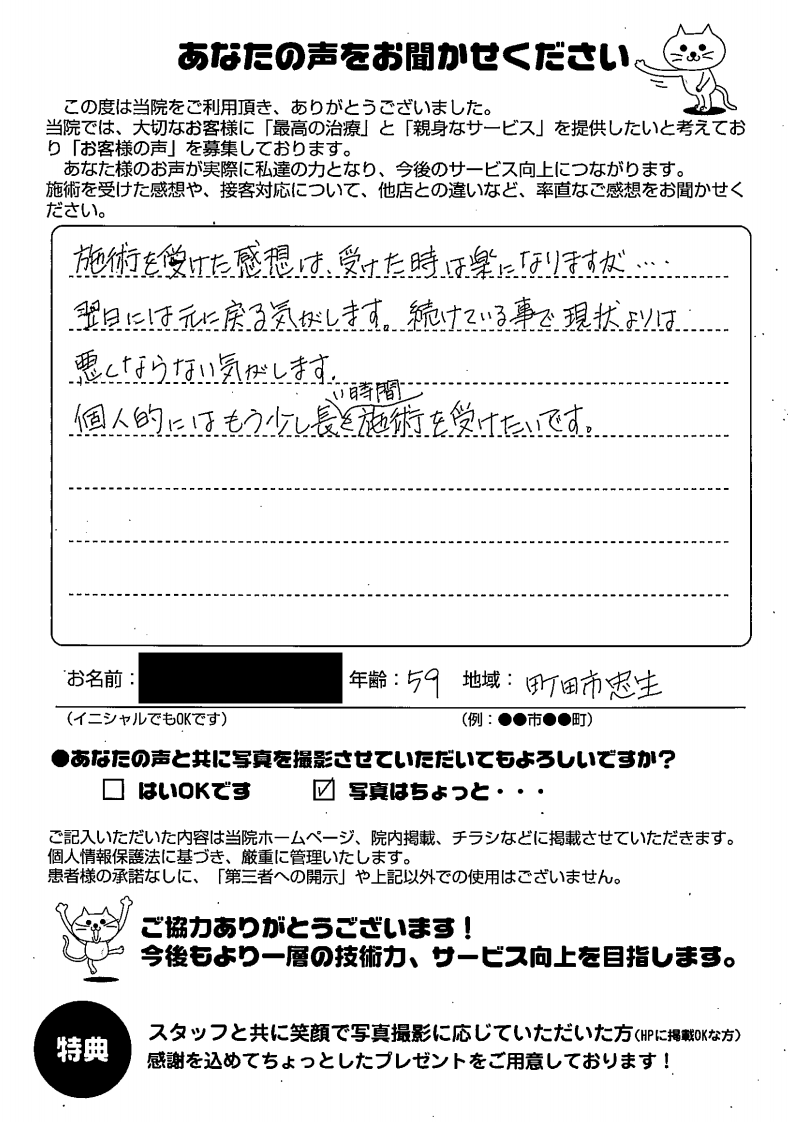 あなたの声をお聞かせください
この度は当院をご利用頂き、ありがとうございました。
当院では、大切なお客様に「最高の治療」と「親身なサービス」を提供したいと考えてお
り「お客様の声」を募集しております。
あなた様のお声が実際に私達の力となり、今後のサービス向上につながります。
施術を受けた感想や、接客対応について、他店との違いなど、率直なご感想をお聞かせく
ださい。
施術を受けた感想は、受けた時は楽になりますが…
翌日には元に戻る気がします。続けている事で現状よりは
悪くならない気がします。
い時間
個人的にはもう少し長を施術を受けたいです。
お名前： 年齢：59 地域：町田市忠生
（イニシャルでもOKです） （例：●●市●●町）
●あなたの声と共に写真を撮影させていただいてもよろしいですか？
□ はいOKです ☑ 写真はちょっと・・・
ご記入いただいた内容は当院ホームページ、院内掲載、チラシなどに掲載させていただきます。
個人情報保護法に基づき、厳重に管理いたします。
患者様の承諾なしに、「第三者への開示」や上記以外での使用はございません。
ご協力ありがとうございます！
今後もより一層の技術力、サービス向上を目指します。
特典
スタッフと共に笑顔で写真撮影に応じていただいた方（HPに掲載OKな方）
感謝を込めてちょっとしたプレゼントをご用意しております！